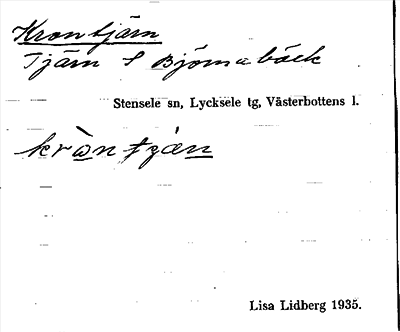 Krontjärn
Tjärn S Björnabäck
Stensele sn, Lycksele tg, Västerbottens l.
kràntjän
Lisa Lidberg 1935.